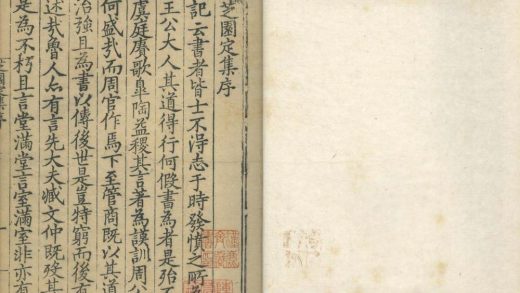 芝園定集序
記云書者皆士不淂志于時發憤之所
王公大人其道得行何假書為者是殆不
虞庭賡歌臯陶益稷其言著為謨訓周公
何盛㢤而周官作焉下至管商既以其道
治強且為書以傳後世是豈特窮而後有
述㢤魯人亦有言先大夫臧文仲既殁其
是為不朽且言堂滿堂言室滿室非亦有